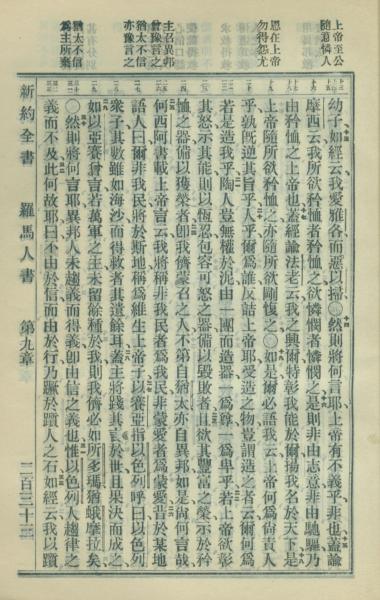 上帝至公
隨意憐人
恩在上帝
勿得怨尤
主召異邦
曾豫言之
猶太不信
亦豫言之
猶太不信
爲主所棄
幼子如經云我愛雅各而惡以掃○然則將何言耶上帝有不義乎非也蓋諭
摩西云我所欲矜恤者矜恤之欲憐憫者憐憫之是則非由志意非由馳驅乃
由矜恤之上帝也蓋經論法老云我之興爾特彰我能於爾揚我名於天下是
上帝隨所欲矜恤之亦隨所欲剛愎之○如是爾必語我云上帝何爲尙責人
乎孰旣逆其旨乎人乎爾爲誰反詰上帝耶受造之物豈謂造之者云爾何爲
若是造我乎陶人豈無權於泥由一團而造器一爲尊一爲卑乎若上帝欲彰
其怒示其能則以恆忍包容可怒之器備以毀敗者且欲其豐富之榮示於矜
恤之器備以獲榮者卽我儕蒙召之人不第自猶太亦自異邦如是尙何言哉
何西阿書載上帝言云我將稱非我民者爲我民非蒙愛者爲蒙愛昔於某地
語人曰爾非我民將於斯地稱爲維生上帝子以賽亞指以色列呼曰以色列
衆子其數雖如海沙而得救者其遺餘耳蓋主將踐其言於世且果決而成之
如以亞賽曾言若萬軍之主未留餘種於我則我儕必如所多瑪猶蛾摩拉矣
○然則將何言耶異邦人未趨義而得義卽由信之義也惟以色列人趨律之
義而不及此何故耶曰不由於信而由於行乃蹶於躓人之石如經云我以躓
新約全書　羅馬人書　第九章　二百三十三